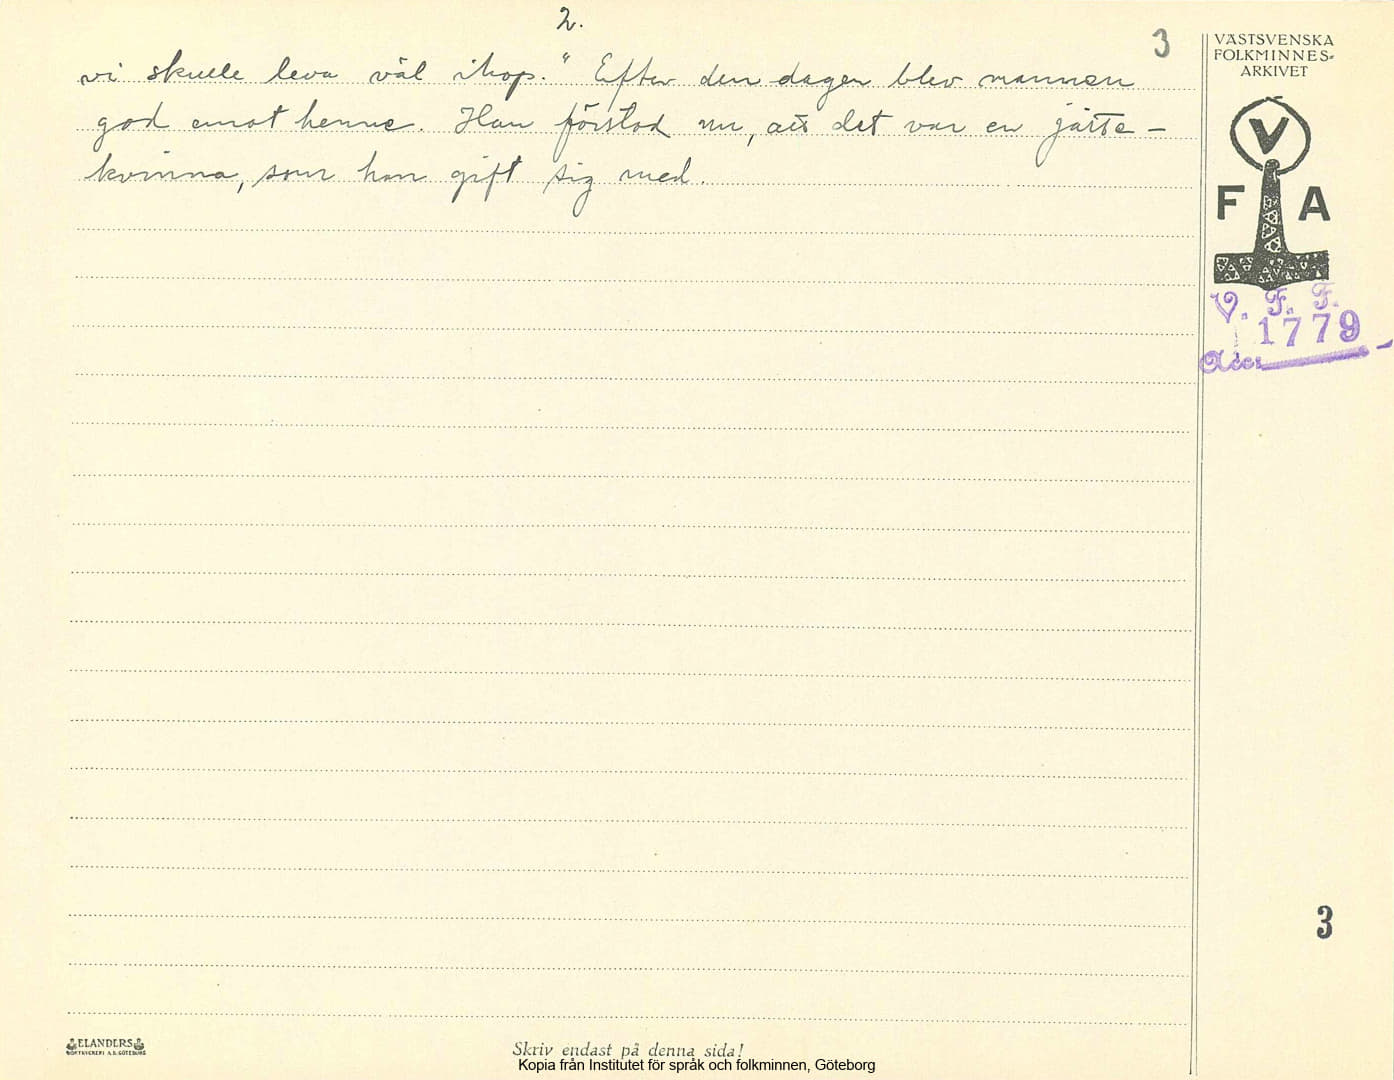 2.
3
vi skulle leva väl ihop." Efter den dagen blev mannen
god emot henne. Han förstod nu, att det var en jätte-
kvinna, som han gift sig med.
VÄSTSVENSKA
FOLKMINNES-
ARKIVET
V
F A
V. F. F.
1779
Acc.
3
ELANDERS
BOKTRYCKERI A.B. GÖTEBORG
Skriv endast på denna sida!
Kopia från Institutet för språk och folkminnen, Göteborg